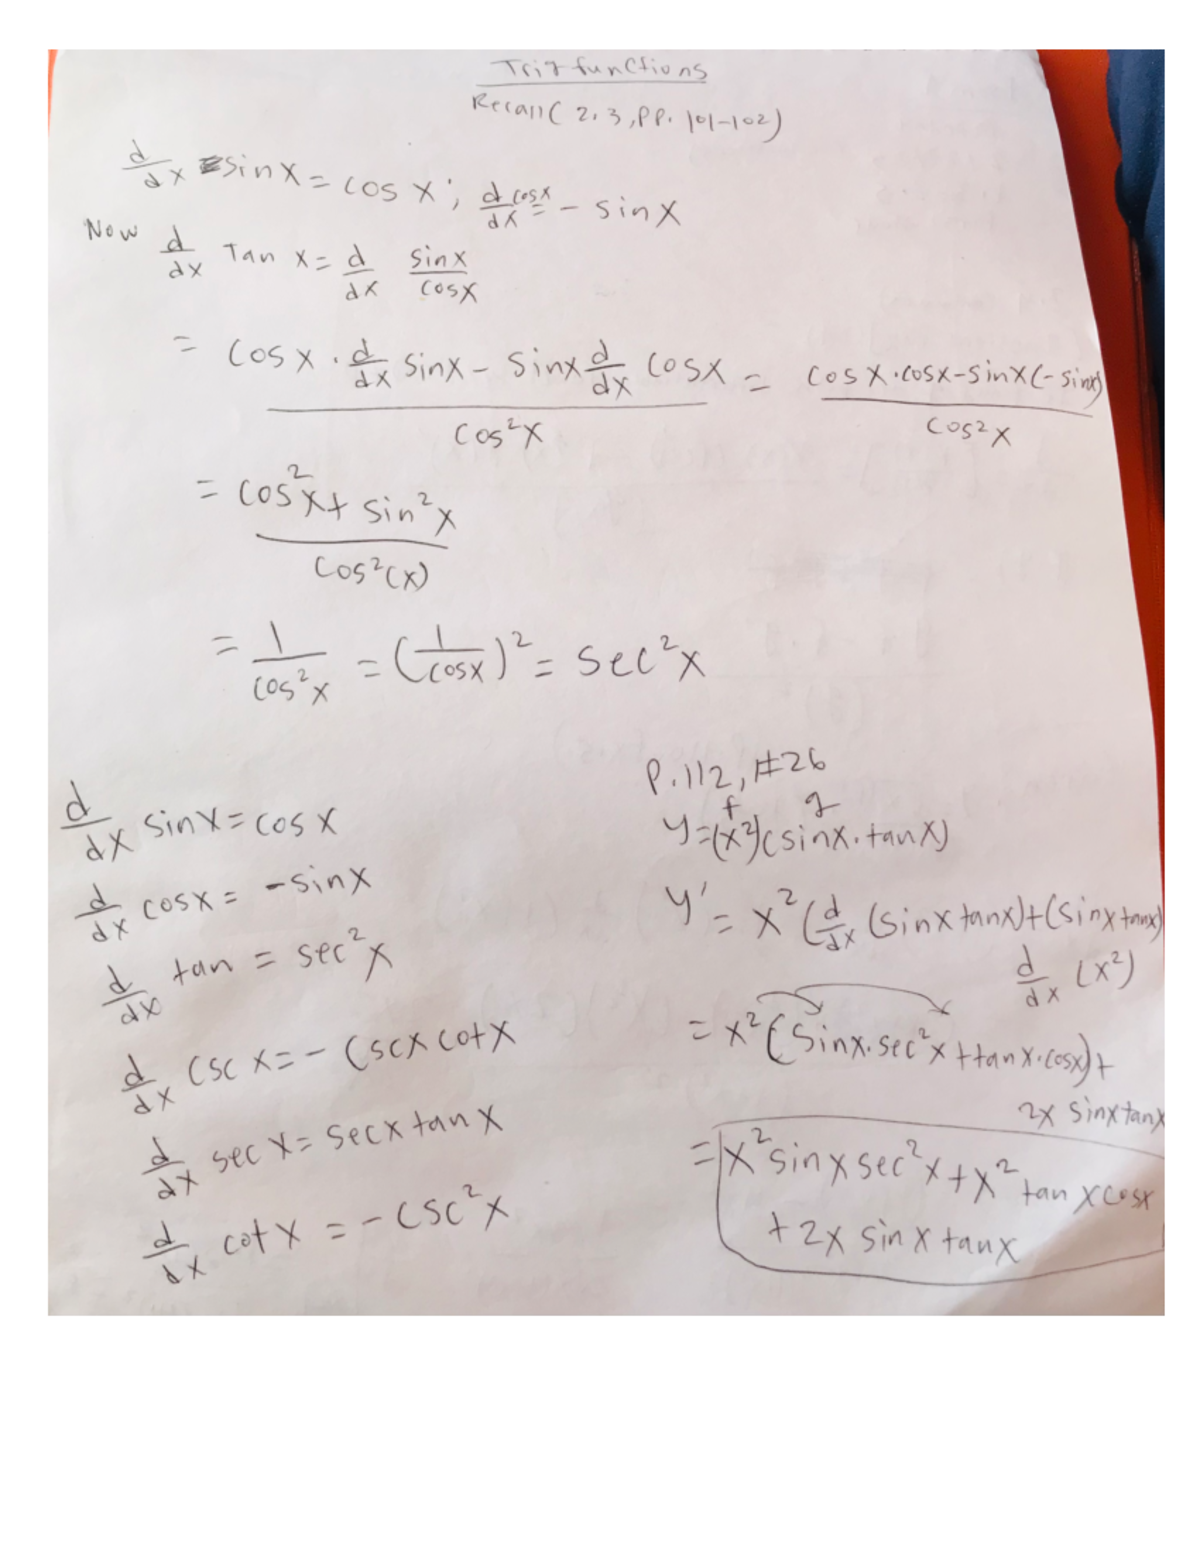 Trig functions
Recall ( 2.3, PP. 101-102)
d/dx sin x = cos x ; d/dx cosx = - sin x
Now d/dx Tan x = d/dx sinx/cosx
= (cos x · d/dx sinx - sinx d/dx cosx)/cos²x = (cosx·cosx-sinx(-sinx))/cos²x
= (cos²x + sin²x)/cos²(x)
= 1/cos²x = (1/cosx)² = sec²x
d/dx sinx = cos x
d/dx cosx = -sinx
d/dx tan = sec²x
d/dx csc x = - cscx cotx
d/dx sec x = secx tan x
d/dx cot x = - csc²x
P.112, #26
f g
y=(x²)(sinx·tanx)
y' = x² (d/dx (sinx tanx)+(sinx tanx)
d/dx (x²)
= x² (sinx·sec²x + tanx·cosx) +
2x sinx tanx
= x² sinx sec²x + x² tan x cosx
+ 2x sin x tanx